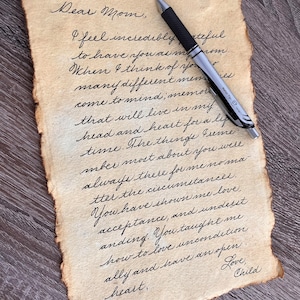 Dear Mom,
I feel incredibly grateful
to have you as my mom
When I think of you
many different memories
come to mind, memories
that will live in my
head and heart for a life
time. The things I reme
mber most about you were
always there for me no ma
tter the circumstances
You have shown me love
acceptance, and underst
anding. You taught me
how to love uncondition
ally and have an open
heart.
Love
Child